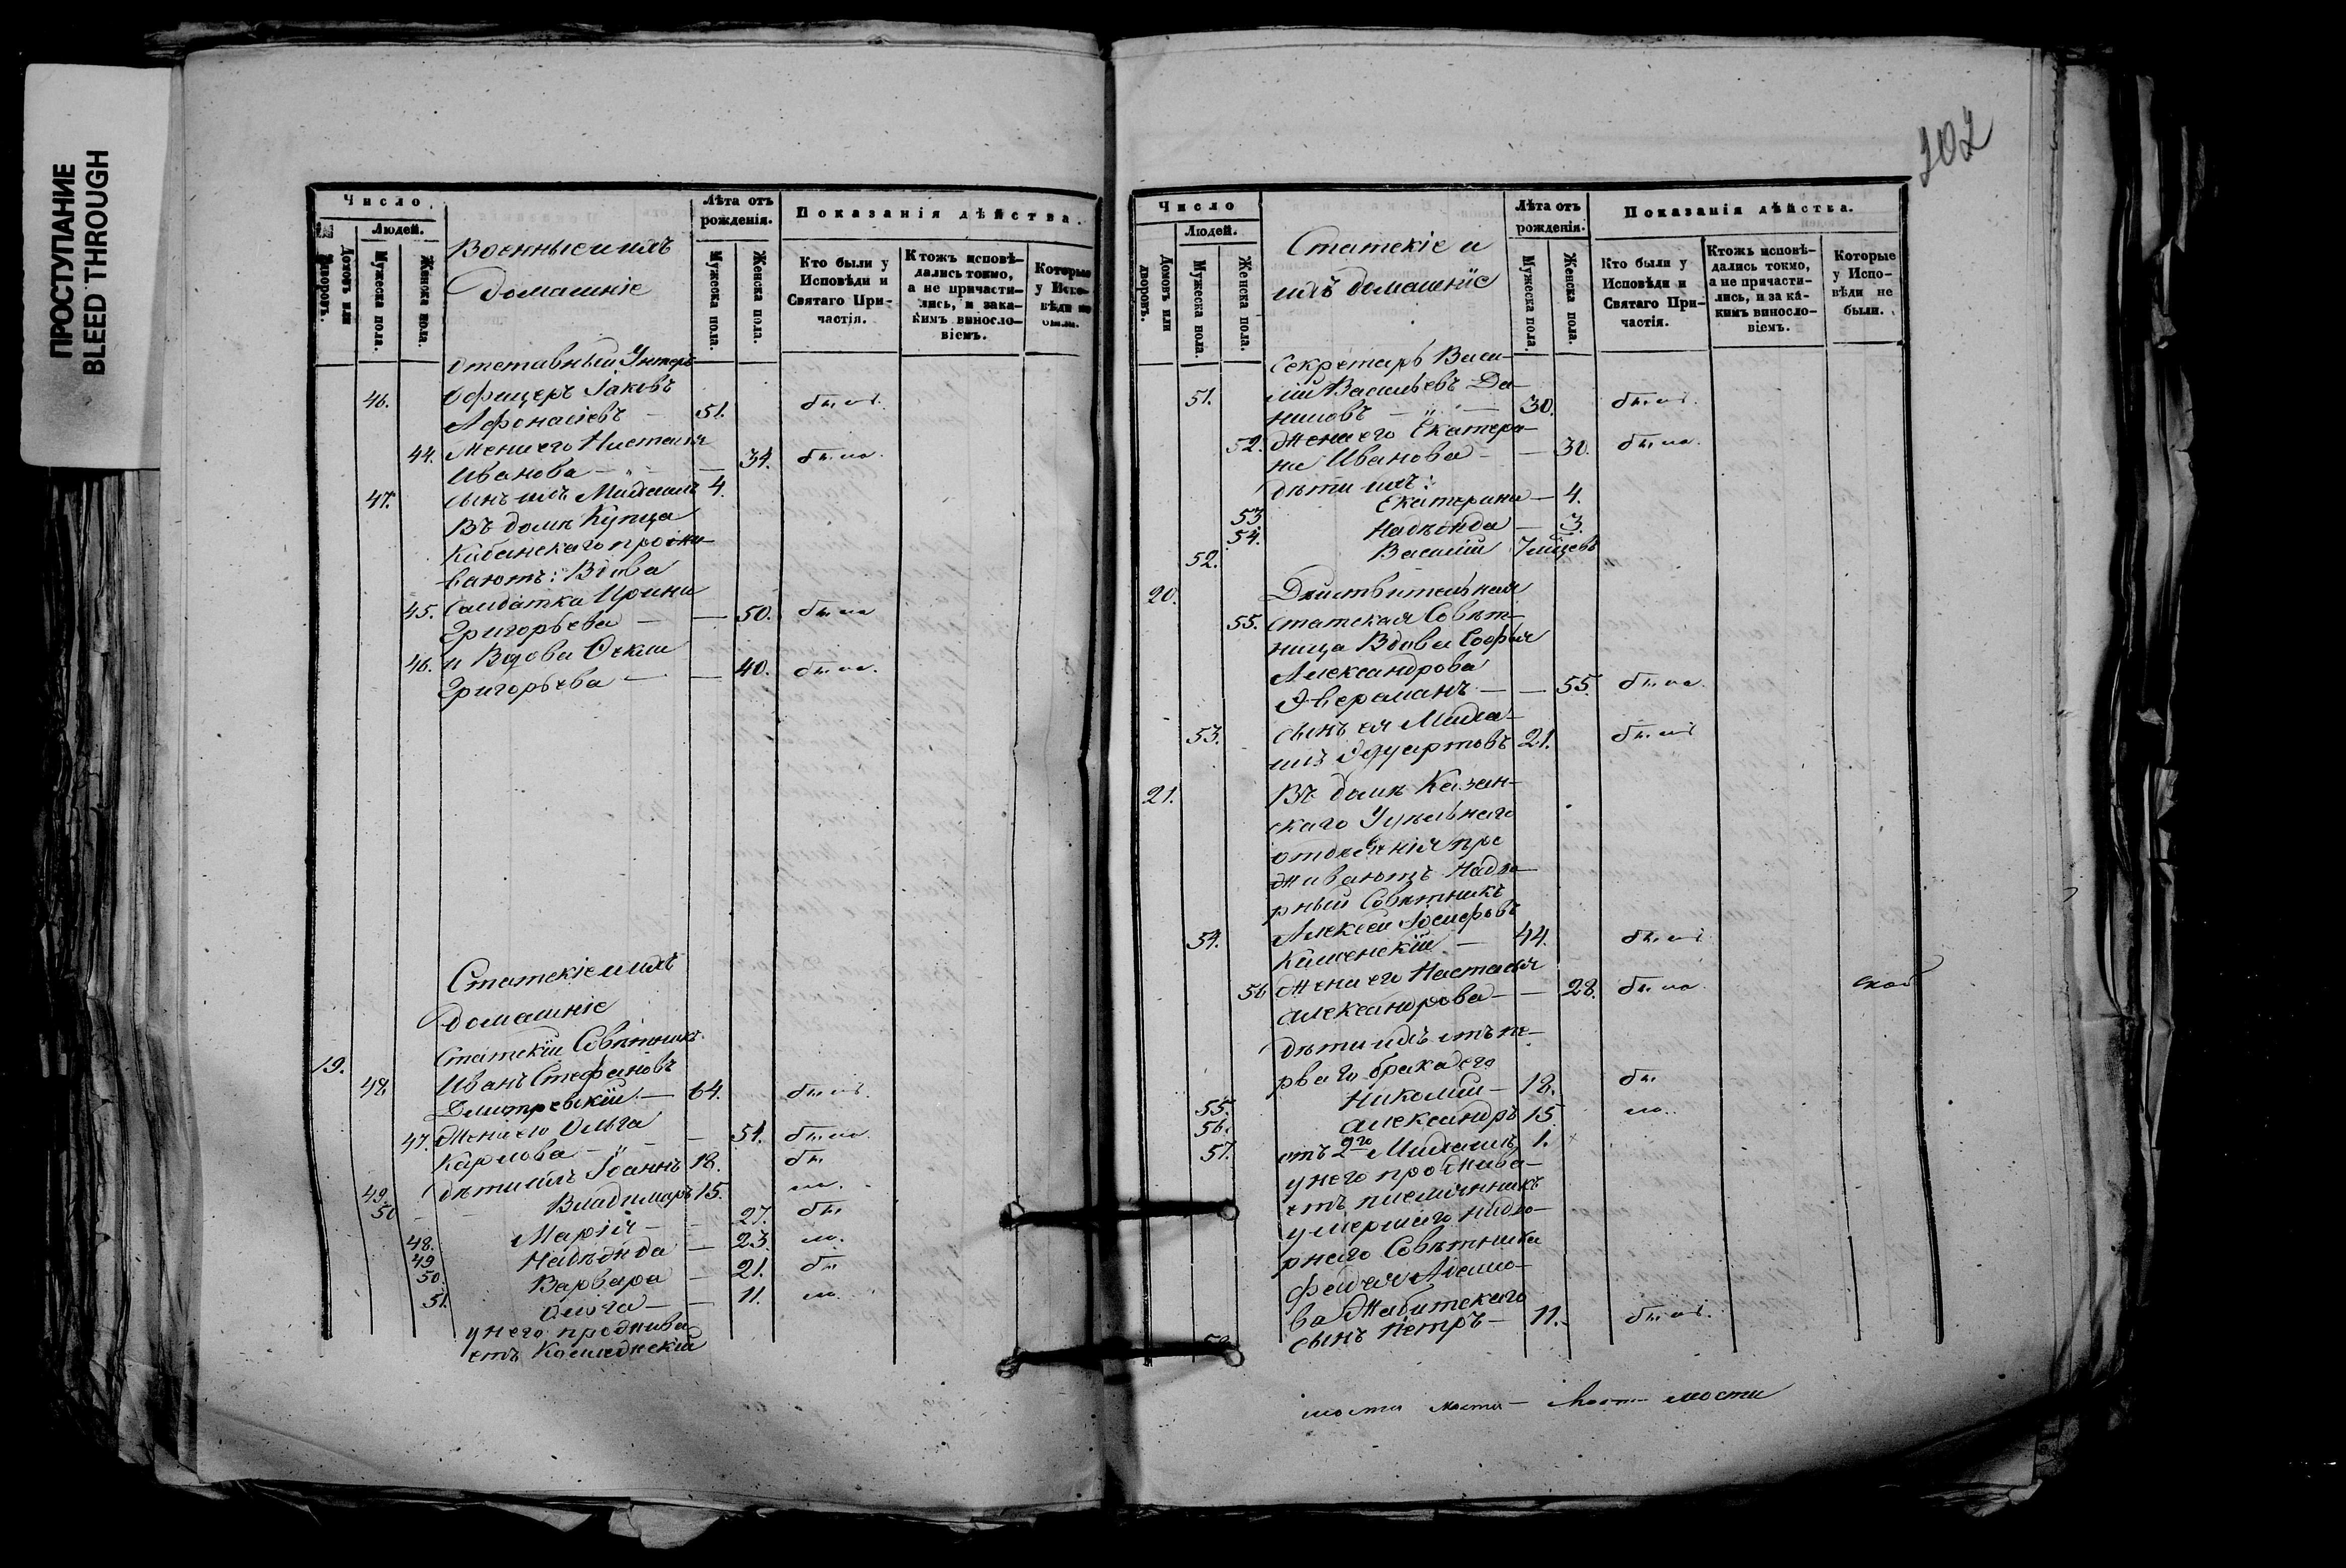 ПРОСТУПАНИЕ
BLEED THROUGH
Число
Людей.
Домовъ или дворовъ.
Мужеска пола.
Женска пола.
Военные и ихъ
домашніе
Лѣта отъ
рожденія.
Мужеска пола.
Женска пола.
Показанія дѣйства.
Кто были у
Исповѣди и
Святаго При-
частія.
Ктожъ исповѣ-
дались токмо,
а не причасти-
лись, и зака-
кимъ винosло-
віемъ.
Которые
у Испо-
вѣди не
были.
Отставный Унтеръ
46. Офицеръ Іаковъ
Афонасіевъ — 51. былъ.
44. Жена его Настасья
Иванова — 34. была.
47. Сынъ ихъ Михаилъ 4.
Въ домѣ Купца
Кабанскаго прожи-
ваютъ: Вдова
45. Салдатка Ирина
Григорьева — 50. была
46. и Вдова
Григорьева — 40. была.
Статскіе и ихъ
домашніе
19. Статскій Совѣтникъ
48. Иванъ Стефановъ
Дмитревскій — 64. былъ.
47. Жена его Ольга
Карлова — 51. была.
49. дѣти ихъ Іоаннъ 18. бы
50 Владимиръ 15. ли.
48. Марія — 27. бы
49 Надежда — 23. ли.
50. Варвара — 21. бы
51. Ольга — 11. ли.
у него прожива
етъ
202
Число
Людей.
Домовъ или дворовъ.
Мужеска пола.
Женска пола.
Статскіе и
ихъ домашніе
Лѣта отъ
рожденія.
Мужеска пола.
Женска пола.
Показанія дѣйства.
Кто были у
Исповѣди и
Святаго При-
частія.
Ктожъ исповѣ-
дались токмо,
а не причасти-
лись, и за ка-
кимъ виносло-
віемъ.
Которые
у Испо-
вѣди не
были.
Секретарь Васи-
51. лій Васильевъ Да-
ниловъ — 30. былъ.
52. Жена его Екатери-
на Иванова — 30. была.
дѣти ихъ:
53. Екатерина — 4.
54. Надежда — 3.
52. Василій 7 мѣсяцевъ
20. Дѣйствительная
55. Статская Совѣт-
ница Вдова Софья
Александрова
Эверсманъ — 55. была.
53. Сынъ ея Миха-
илъ Эдуартовъ 21. былъ
21. Въ домѣ Казан-
скаго Удѣльнаго
отдѣленія про
живаютъ Надво
рный Совѣтникъ
54. Алексѣй Іосифовъ
Каменскій — 44. былъ
56 Жена его Настасья
Александрова — 28. была
дѣти ихъ отъ пе-
рваго брака его
55. Николай — 18. бы
56. Александръ 15 ли.
57. отъ 2го Михаилъ 1.
у него прожива-
етъ племянникъ
умершаго надво-
рнаго Совѣтника
58. сынъ Петръ — 11. былъ.
мости мости — мости мости